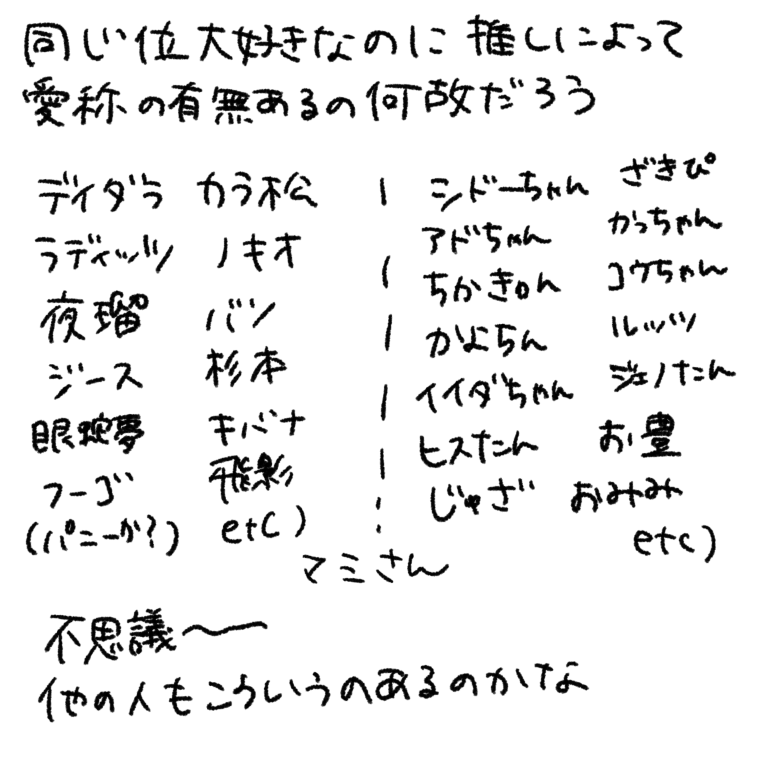 同じ位大好きなのに推しによって
愛称の有無あるの何故だろう
デイダラ カラ松
ラディッツ ノキオ
夜瑠 バツ
ジース 杉本
眼蛇夢 キバナ
フーゴ 飛影
(パニーか?) etc)
シドーちゃん ざきぴ
アドちゃん かっちゃん
ちかきゅん コウちゃん
かよちん ルッツ
イイダちゃん ジェノたん
ヒスたん お豊
じゅざ おみみ
etc)
マミさん
不思議〜
他の人もこういうのあるのかな